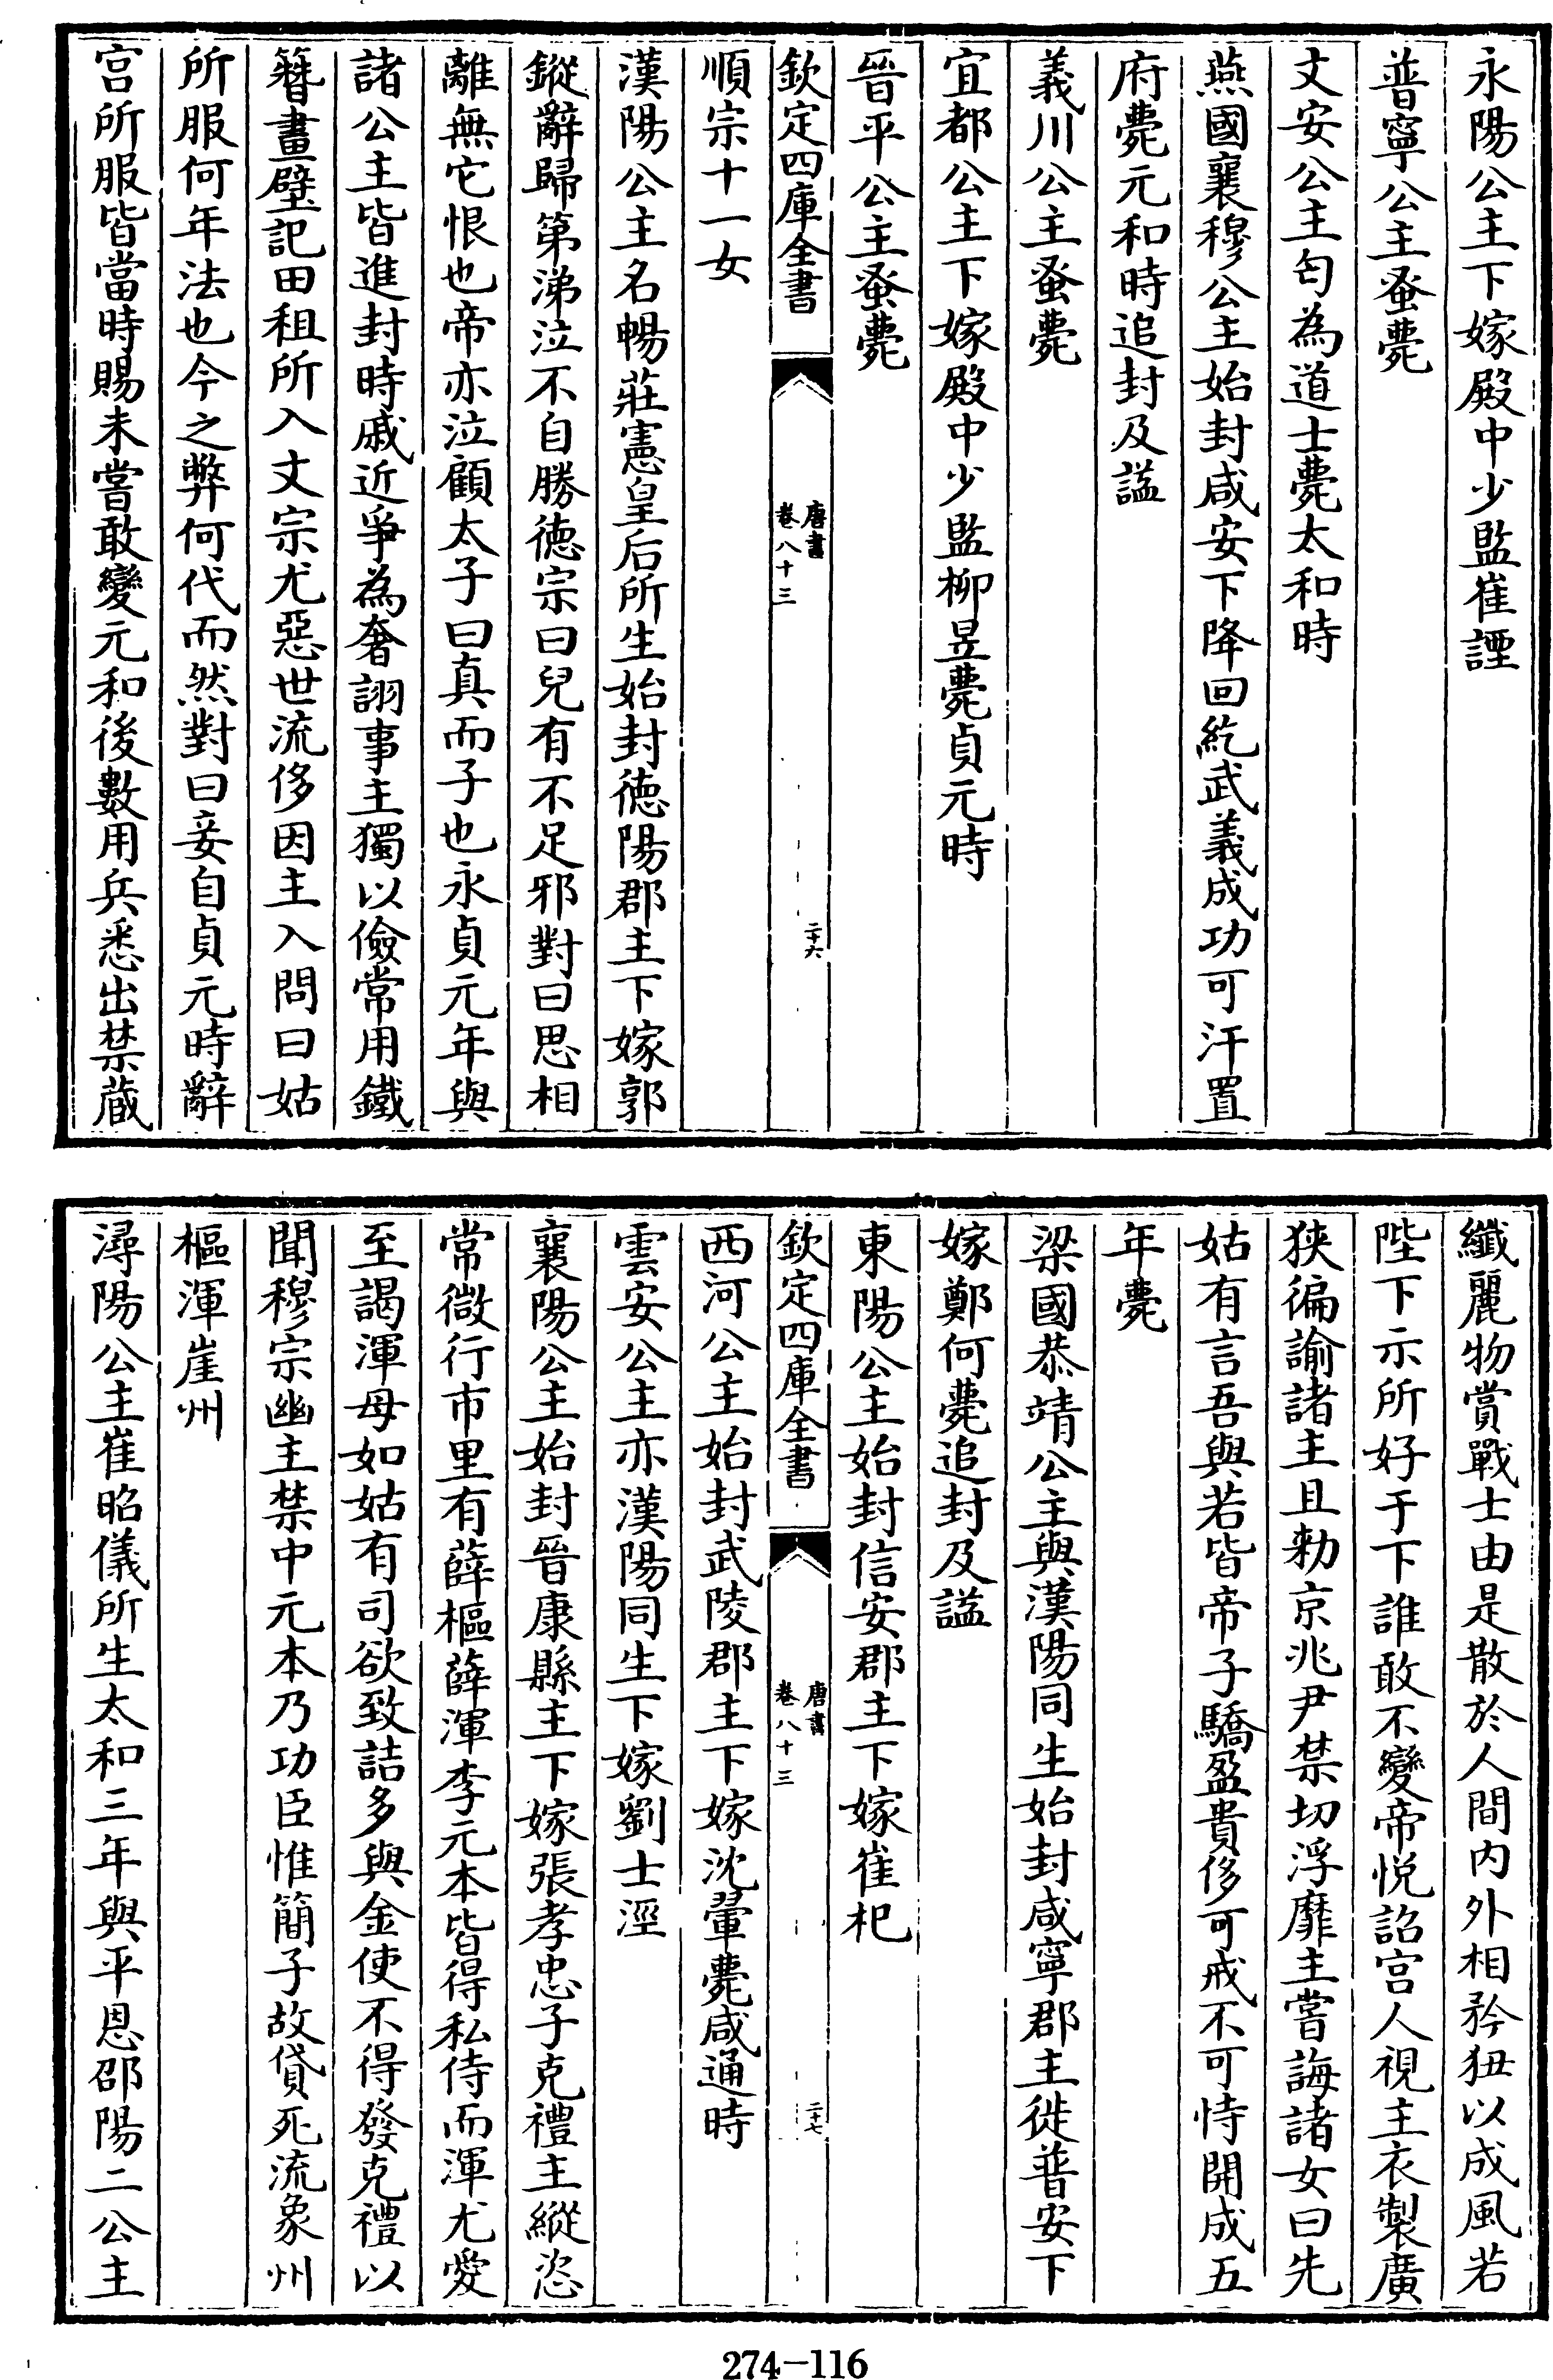 永陽公主下嫁殿中少監崔諲
普寧公主蚤薨
文安公主匄為道士薨太和時
燕國襄穆公主始封咸安下降回紇武義成功可汗置
府薨元和時追封及諡
義川公主蚤薨
宜都公主下嫁殿中少監柳昱薨貞元時
晉平公主蚤薨
欽定四庫全書
唐書
卷八十三
二十六
順宗十一女
漢陽公主名暢莊憲皇后所生始封徳陽郡主下嫁郭
鏦辭歸第涕泣不自勝徳宗曰兒有不足邪對曰思相
離無它恨也帝亦泣顧太子曰真而子也永貞元年與
諸公主皆進封時戚近爭為奢詡事主獨以儉常用鐵
簪畫壁記田租所入文宗尤惡世流侈因主入問曰姑
所服何年法也今之弊何代而然對曰妾自貞元時辭
宮所服皆當時賜未嘗敢變元和後數用兵悉出禁藏
纖麗物賞戰士由是散於人間内外相矜狃以成風若
陛下示所好于下誰敢不變帝悅詔宮人視主衣製廣
狹徧諭諸主且勑京兆尹禁切浮靡主嘗誨諸女曰先
姑有言吾與若皆帝子驕盈貴侈可戒不可恃開成五
年薨
梁國恭靖公主與漢陽同生始封咸寧郡主徙普安下
嫁鄭何薨追封及諡
東陽公主始封信安郡主下嫁崔杞
欽定四庫全書
唐書
卷八十三
二十七
西河公主始封武陵郡主下嫁沈翬薨咸通時
雲安公主亦漢陽同生下嫁劉士涇
襄陽公主始封晉康縣主下嫁張孝忠子克禮主縱恣
常微行市里有薛樞薛渾李元本皆得私侍而渾尤愛
至謁渾母如姑有司欲致詰多與金使不得發克禮以
聞穆宗幽主禁中元本乃功臣惟簡子故貸死流象州
樞渾崖州
潯陽公主崔昭儀所生太和三年與平恩邵陽二公主
274—116